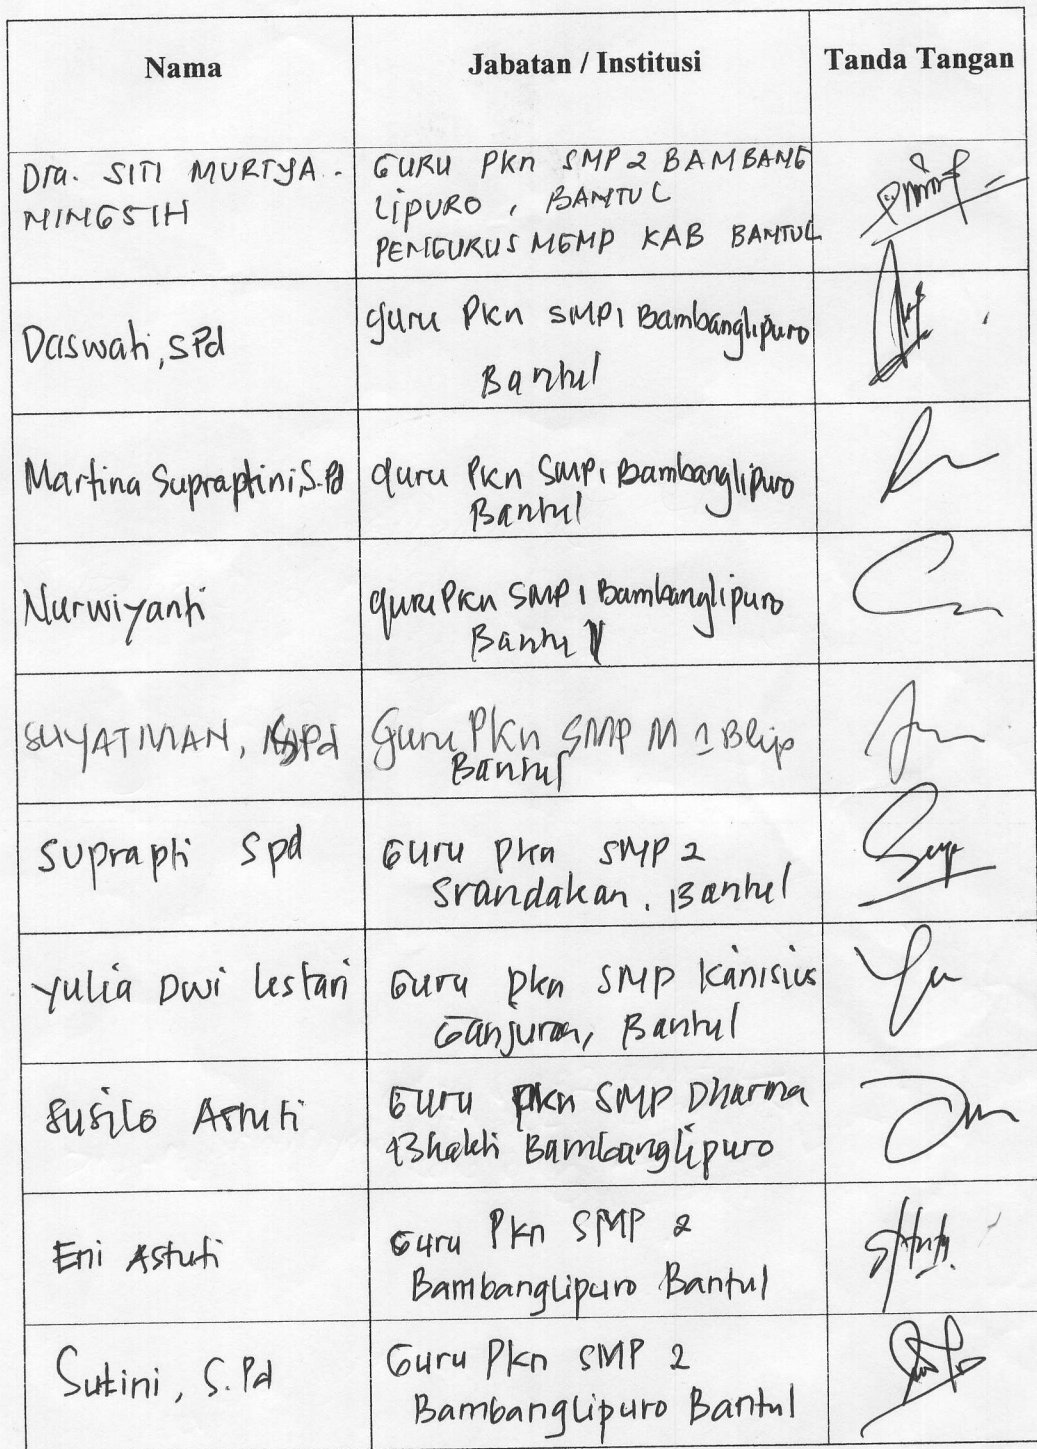 Nama Jabatan / Institusi Tanda Tangan
Dra. SITI MURTYA - GURU PKn SMP 2 BAMBANG
NINGSIH LIPURO, BANTUL
PENGURUS MGMP KAB BANTUL
Daswati, SPd guru PKn SMP1 Bambanglipuro
Bantul
Martina Supraptini, S.Pd guru PKn SMP1 Bambanglipuro
Bantul
Nurwiyanti guru PKn SMP 1 Bambanglipuro
Bantul
SUYATMAN, SPd Guru PKn SMP M 1 Blip
Bantul
Suprapti Spd Guru PKn SMP 2
Srandakan, Bantul
Yulia Dwi Lestari Guru PKn SMP Kanisius
Ganjuran, Bantul
Susilo Astuti Guru PKn SMP Dharma
Bhakti Bambanglipuro
Eni Astuti Guru PKn SMP 2
Bambanglipuro Bantul
Sutini, S.Pd Guru PKn SMP 2
Bambanglipuro Bantul